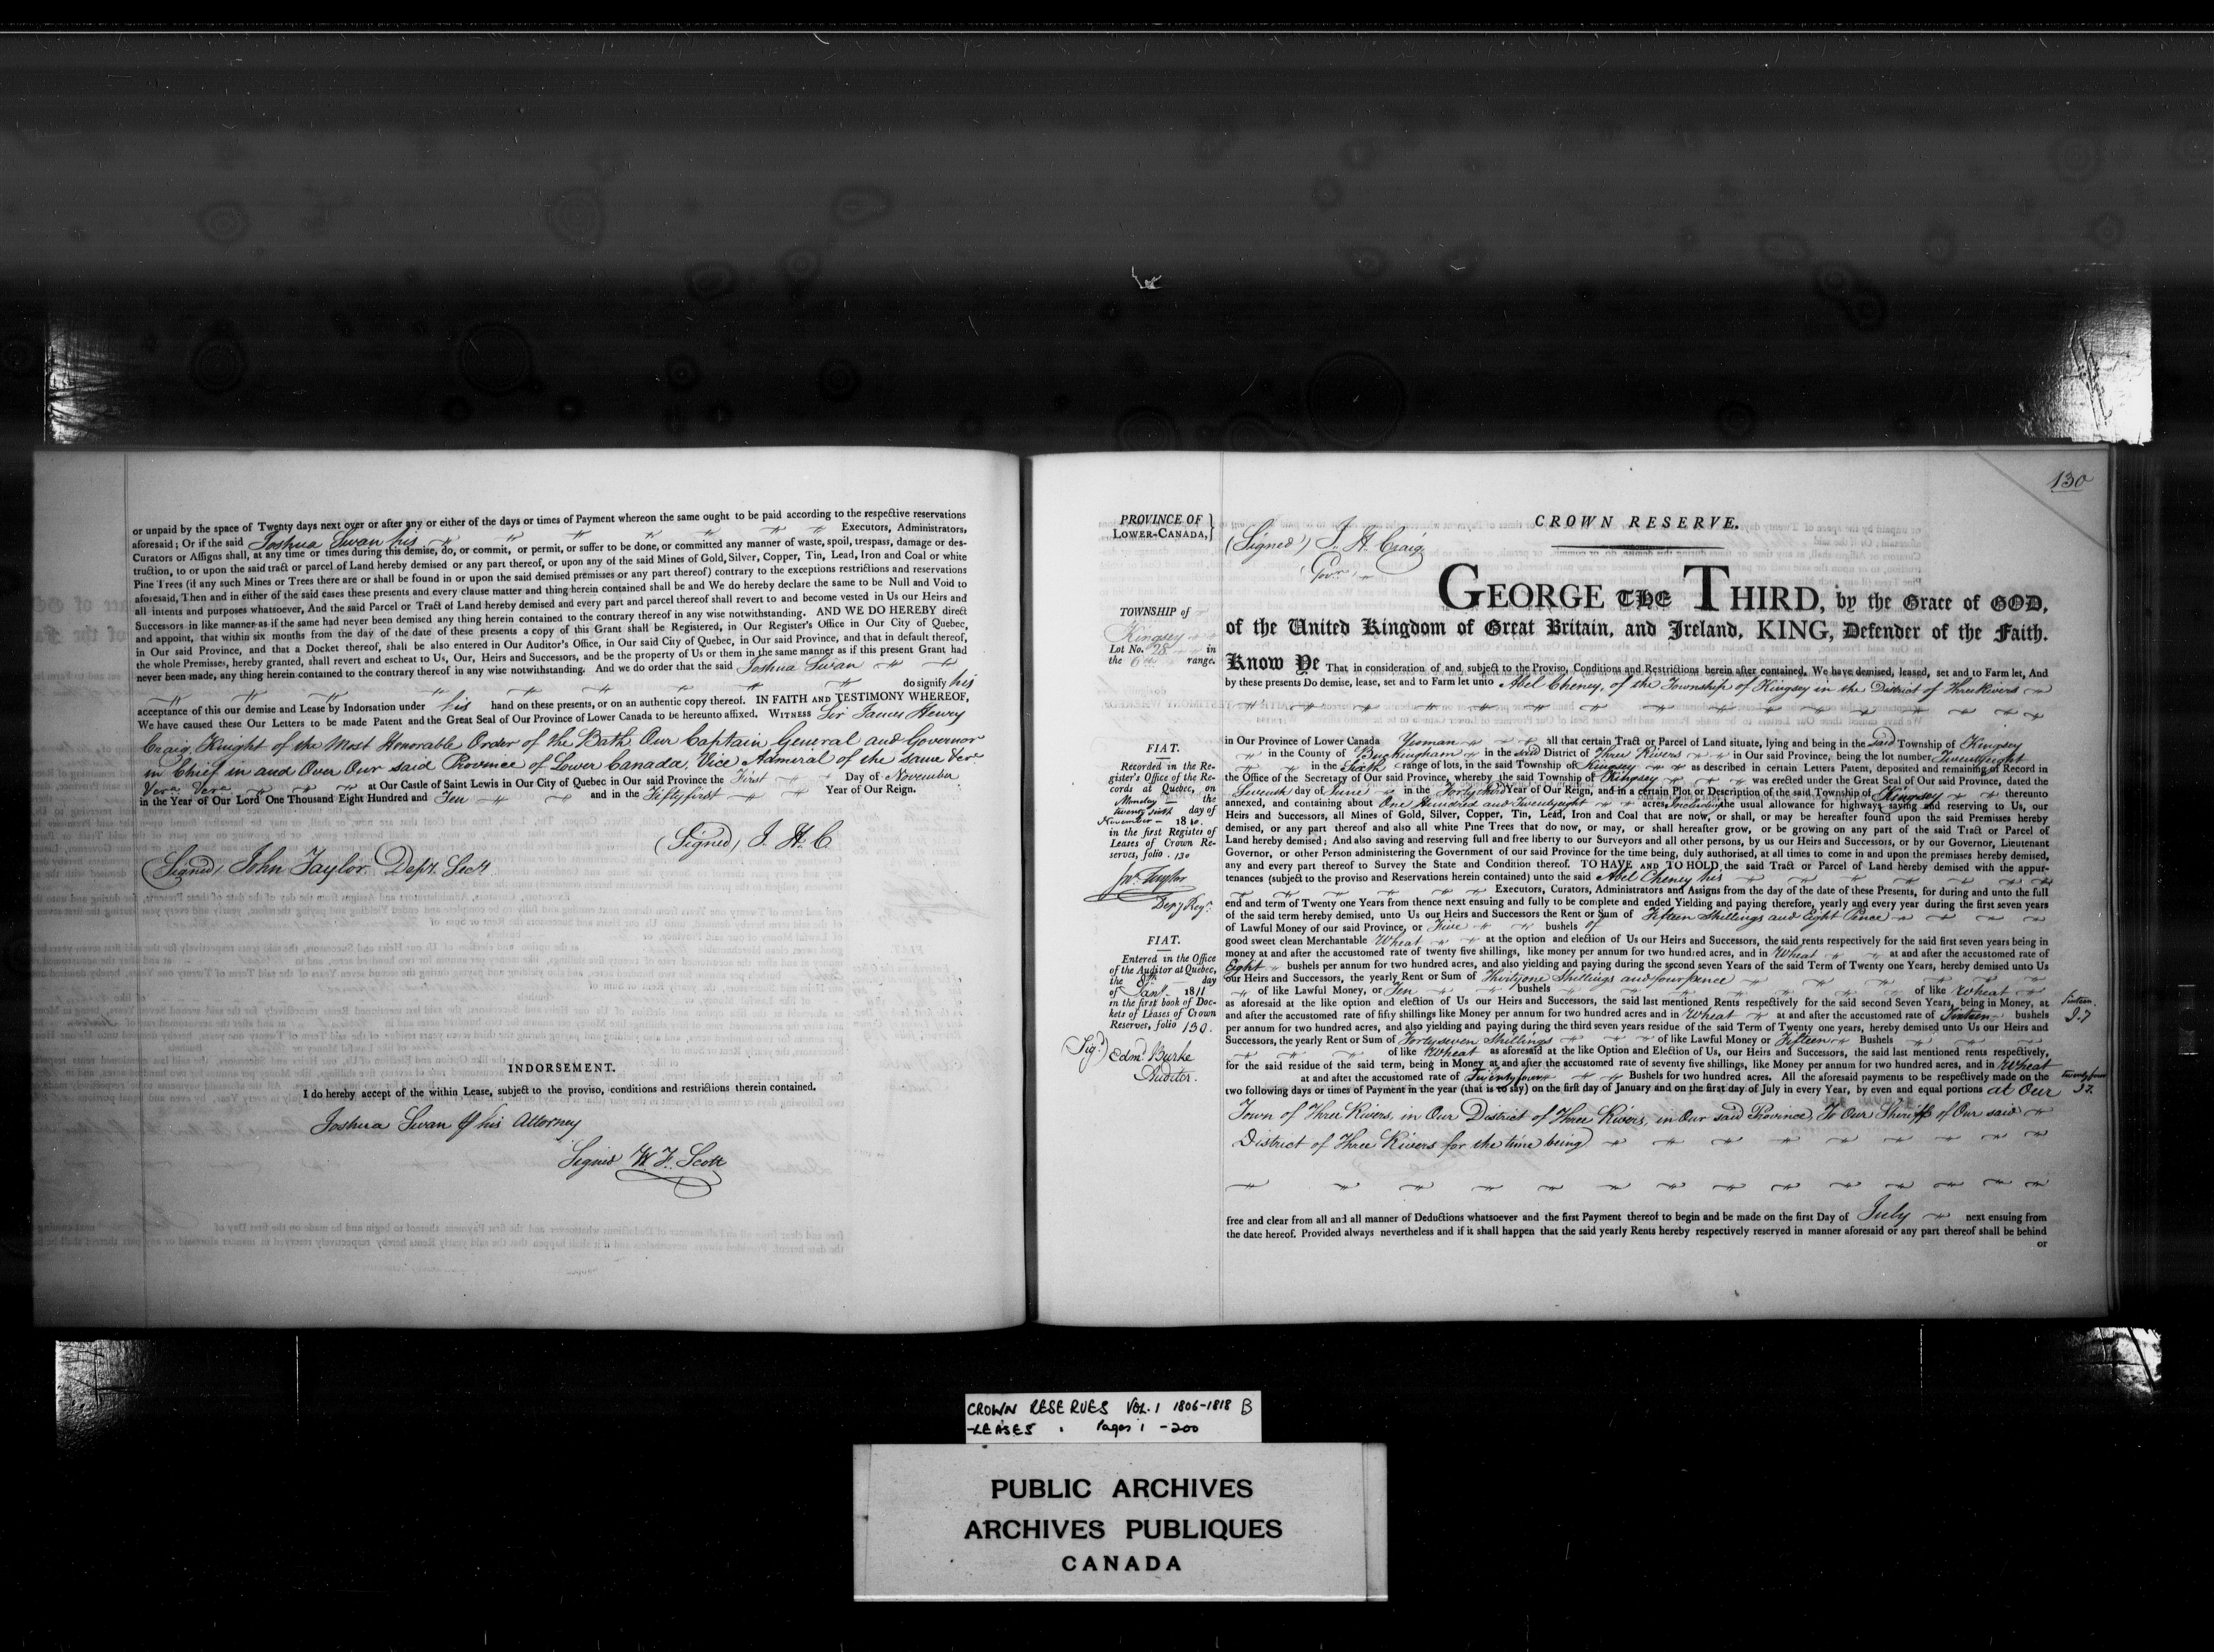 or unpaid by the space of Twenty days next over or after any or either of the days or times of Payment whereon the same ought to be paid according to the respective reservations
aforesaid; Or if the said Joshua Swan his Executors, Administrators,
Curators or Assigns shall, at any time or times during this demise, do, or commit, or permit, or suffer to be done, or committed any manner of waste, spoil, trespass, damage or des-
truction, to or upon the said tract or parcel of Land hereby demised or any part thereof, or upon any of the said Mines of Gold, Silver, Copper, Tin, Lead, Iron and Coal or white
Pine Trees (if any such Mines or Trees there are or shall be found in or upon the said demised premisses or any part thereof) contrary to the exceptions restrictions and reservations
aforesaid, Then and in either of the said cases these presents and every clause matter and thing herein contained shall be and We do hereby declare the same to be Null and Void to
all intents and purposes whatsoever, And the said Parcel or Tract of Land hereby demised and every part and parcel thereof shall revert to and become vested in Us our Heirs and
Successors in like manner as if the same had never been demised any thing herein contained to the contrary thereof in any wise notwithstanding. AND WE DO HEREBY direct
and appoint, that within six months from the day of the date of these presents a copy of this Grant shall be Registered, in Our Register's Office in Our City of Quebec,
in Our said Province, and that a Docket thereof, shall be also entered in Our Auditor's Office, in Our said City of Quebec, in Our said Province, and that in default thereof,
the whole Premisses, hereby granted, shall revert and escheat to Us, Our, Heirs and Successors, and be the property of Us or them in the same manner as if this present Grant had
never been made, any thing herein contained to the contrary thereof in any wise notwithstanding. And we do order that the said Joshua Swan
do signify his
acceptance of this our demise and Lease by Indorsation under his hand on these presents, or on an authentic copy thereof. IN FAITH AND TESTIMONY WHEREOF,
We have caused these Our Letters to be made Patent and the Great Seal of Our Province of Lower Canada to be hereunto affixed. WITNESS Sir James Henry
Craig, Knight of the Most Honorable Order of the Bath Our Captain General and Governor
in Chief in and Over Our said Province of Lower Canada, Vice Admiral of the same &c.
&c. &c. at Our Castle of Saint Lewis in Our City of Quebec in Our said Province the First Day of November
in the Year of Our Lord One Thousand Eight Hundred and Ten and in the Fifty first Year of Our Reign.
(Signed) J. H. C
(Signed) John Taylor Depy. Secy.
INDORSEMENT.
I do hereby accept of the within Lease, subject to the proviso, conditions and restrictions therein contained.
Joshua Swan by his Attorney
Signed W. F. Scott
130
PROVINCE OF
LOWER-CANADA,
CROWN RESERVE.
(Signed) J. H. Craig
Govr.
TOWNSHIP of
Kingsey
Lot No. 28 in
the 6th range.
GEORGE THE THIRD, by the Grace of GOD,
of the United Kingdom of Great Britain, and Ireland, KING, Defender of the Faith.
Know Ye That, in consideration of and, subject to the Proviso, Conditions and Restrictions herein after contained. We have demised, leased, set and to Farm let, And
by these presents Do demise, lease, set and to Farm let unto Abel Cheney, of the Township of Kingsey in the District of Three Rivers
in Our Province of Lower Canada Yeoman all that certain Tract or Parcel of Land situate, lying and being in the said Township of Kingsey
in the County of Buckingham in the said District of Three Rivers in Our said Province, being the lot number Twentyeight
in the Sixth range of lots, in the said Township of Kingsey as described in certain Letters Patent, deposited and remaining of Record in
the Office of the Secretary of Our said Province, whereby the said Township of Kingsey was erected under the Great Seal of Our said Province, dated the
Seventh day of June in the Forty third Year of Our Reign, and in a certain Plot or Description of the said Township of Kingsey thereunto
annexed, and containing about One Hundred and Twentyeight acres, Including the usual allowance for highways saving and reserving to Us, our
Heirs and Successors, all Mines of Gold, Silver, Copper, Tin, Lead, Iron and Coal that are now, or shall, or may be hereafter found upon the said Premises hereby
demised, or any part thereof and also all white Pine Trees that do now, or may, or shall hereafter grow, or be growing on any part of the said Tract or Parcel of
Land hereby demised; And also saving and reserving full and free liberty to our Surveyors and all other persons, by us our Heirs and Successors, or by our Governor, Lieutenant
Governor, or other Person administering the Government of our said Province for the time being, duly authorised, at all times to come in and upon the premises hereby demised,
any and every part thereof to Survey the State and Condition thereof. TO HAVE AND TO HOLD the said Tract or Parcel of Land hereby demised with the appur-
tenances (subject to the proviso and Reservations herein contained) unto the said Abel Cheney his
Executors, Curators, Administrators and Assigns from the day of the date of these Presents, for during and unto the full
end and term of Twenty one Years from thence next ensuing and fully to be complete and ended Yielding and paying therefore, yearly and every year during the first seven years
of the said term hereby demised, unto Us our Heirs and Successors the Rent or Sum of Fifteen Shillings and Eight Pence
of Lawful Money of our said Province, or Five bushels of
good sweet clean Merchantable Wheat at the option and election of Us our Heirs and Successors, the said rents respectively for the said first seven years being in
money at and after the accustomed rate of twenty five shillings, like money per annum for two hundred acres, and in Wheat at and after the accustomed rate of
Eight bushels per annum for two hundred acres, and also yielding and paying during the second seven Years of the said Term of Twenty one Years, hereby demised unto Us
our Heirs and Successors, the yearly Rent or Sum of Thirtyone Shillings and fourpence
of like Lawful Money, or Ten bushels of like Wheat
as aforesaid at the like option and election of Us our Heirs and Successors, the said last mentioned Rents respectively for the said second Seven Years, being in Money, at
and after the accustomed rate of fifty shillings like Money per annum for two hundred acres and in Wheat at and after the accustomed rate of Sixteen bushels
per annum for two hundred acres, and also yielding and paying during the third seven years residue of the said Term of Twenty one years, hereby demised unto Us our Heirs and
Successors, the yearly Rent or Sum of Forty seven Shillings of like Lawful Money or Fifteen Bushels
of like Wheat as aforesaid at the like Option and Election of Us, our Heirs and Successors, the said last mentioned rents respectively,
for the said residue of the said term, being in Money at and after the accustomed rate of seventy five shillings, like Money per annum for two hundred acres, and in Wheat
at and after the accustomed rate of Twentyfour Bushels for two hundred acres. All the aforesaid payments to be respectively made on the
two following days or times of Payment in the year (that is to say) on the first day of January and on the first day of July in every Year, by even and equal portions at Our
Town of Three Rivers, in Our District of Three Rivers, in Our said Province To Our Sheriff of Our said
District of Three Rivers for the time being
free and clear from all and all manner of Deductions whatsoever and the first Payment thereof to begin and be made on the first Day of July next ensuing from
the date hereof. Provided always nevertheless and if it shall happen that the said yearly Rents hereby respectively reserved in manner aforesaid or any part thereof shall be behind
or
FIAT.
Recorded in the Re-
gister's Office of the Re-
cords at Quebec, on
Monday the
twenty sixth day of
November 1810.
in the first Register of
Leases of Crown Re-
serves, folio 130
Jno. Taylor
Depy Regr.
FIAT.
Entered in the Office
of the Auditor at Quebec,
the 8th day
of Jany. 1811
in the first book of Doc-
kets of Leases of Crown
Reserves, folio 130.
(Sigd.) Edmd. Burke
Auditor.
Sixteen
J.T
twentyfour
J.T.
CROWN RESERVES VOL. 1 1806-1818 B
-LEASES Pages 1 - 200
PUBLIC ARCHIVES
ARCHIVES PUBLIQUES
CANADA